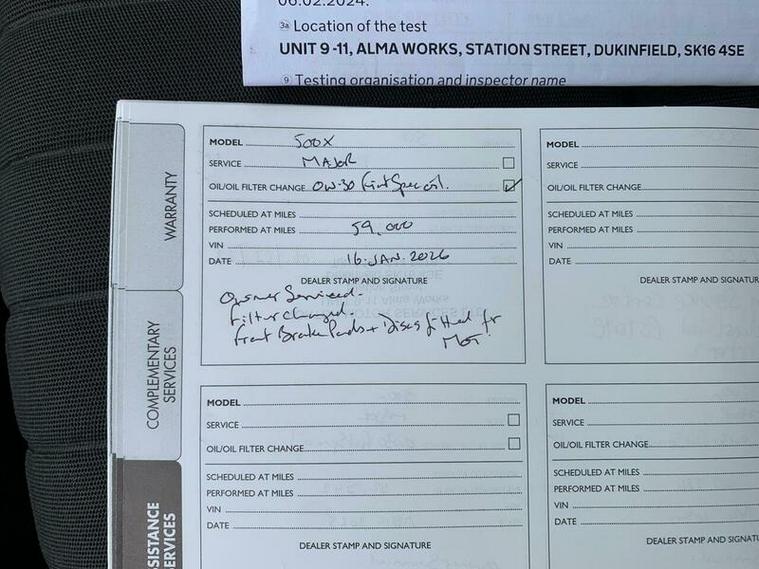 06.02.2024.
3a Location of the test
UNIT 9 -11, ALMA WORKS, STATION STREET, DUKINFIELD, SK16 4SE
9 Testing organisation and inspector name
WARRANTY
COMPLEMENTARY SERVICES
ASSISTANCE SERVICES
MODEL 500X
SERVICE MAJOR
OIL/OIL FILTER CHANGE 0W-30 Fiat Spec oil.
SCHEDULED AT MILES
PERFORMED AT MILES 59,000
VIN
DATE 16-JAN. 2026
DEALER STAMP AND SIGNATURE
Owner Serviced.
Filter changed.
Front Brake Pads + Discs fitted for
MOT.
MODEL
SERVICE
OIL/OIL FILTER CHANGE
SCHEDULED AT MILES
PERFORMED AT MILES
VIN
DATE
DEALER STAMP AND SIGNATUR
MODEL
SERVICE
OIL/OIL FILTER CHANGE
SCHEDULED AT MILES
PERFORMED AT MILES
VIN
DATE
DEALER STAMP AND SIGNATURE
MODEL
SERVICE
OIL/OIL FILTER CHANGE
SCHEDULED AT MILES
PERFORMED AT MILES
VIN
DATE
DEALER STAMP AND SIGNATU